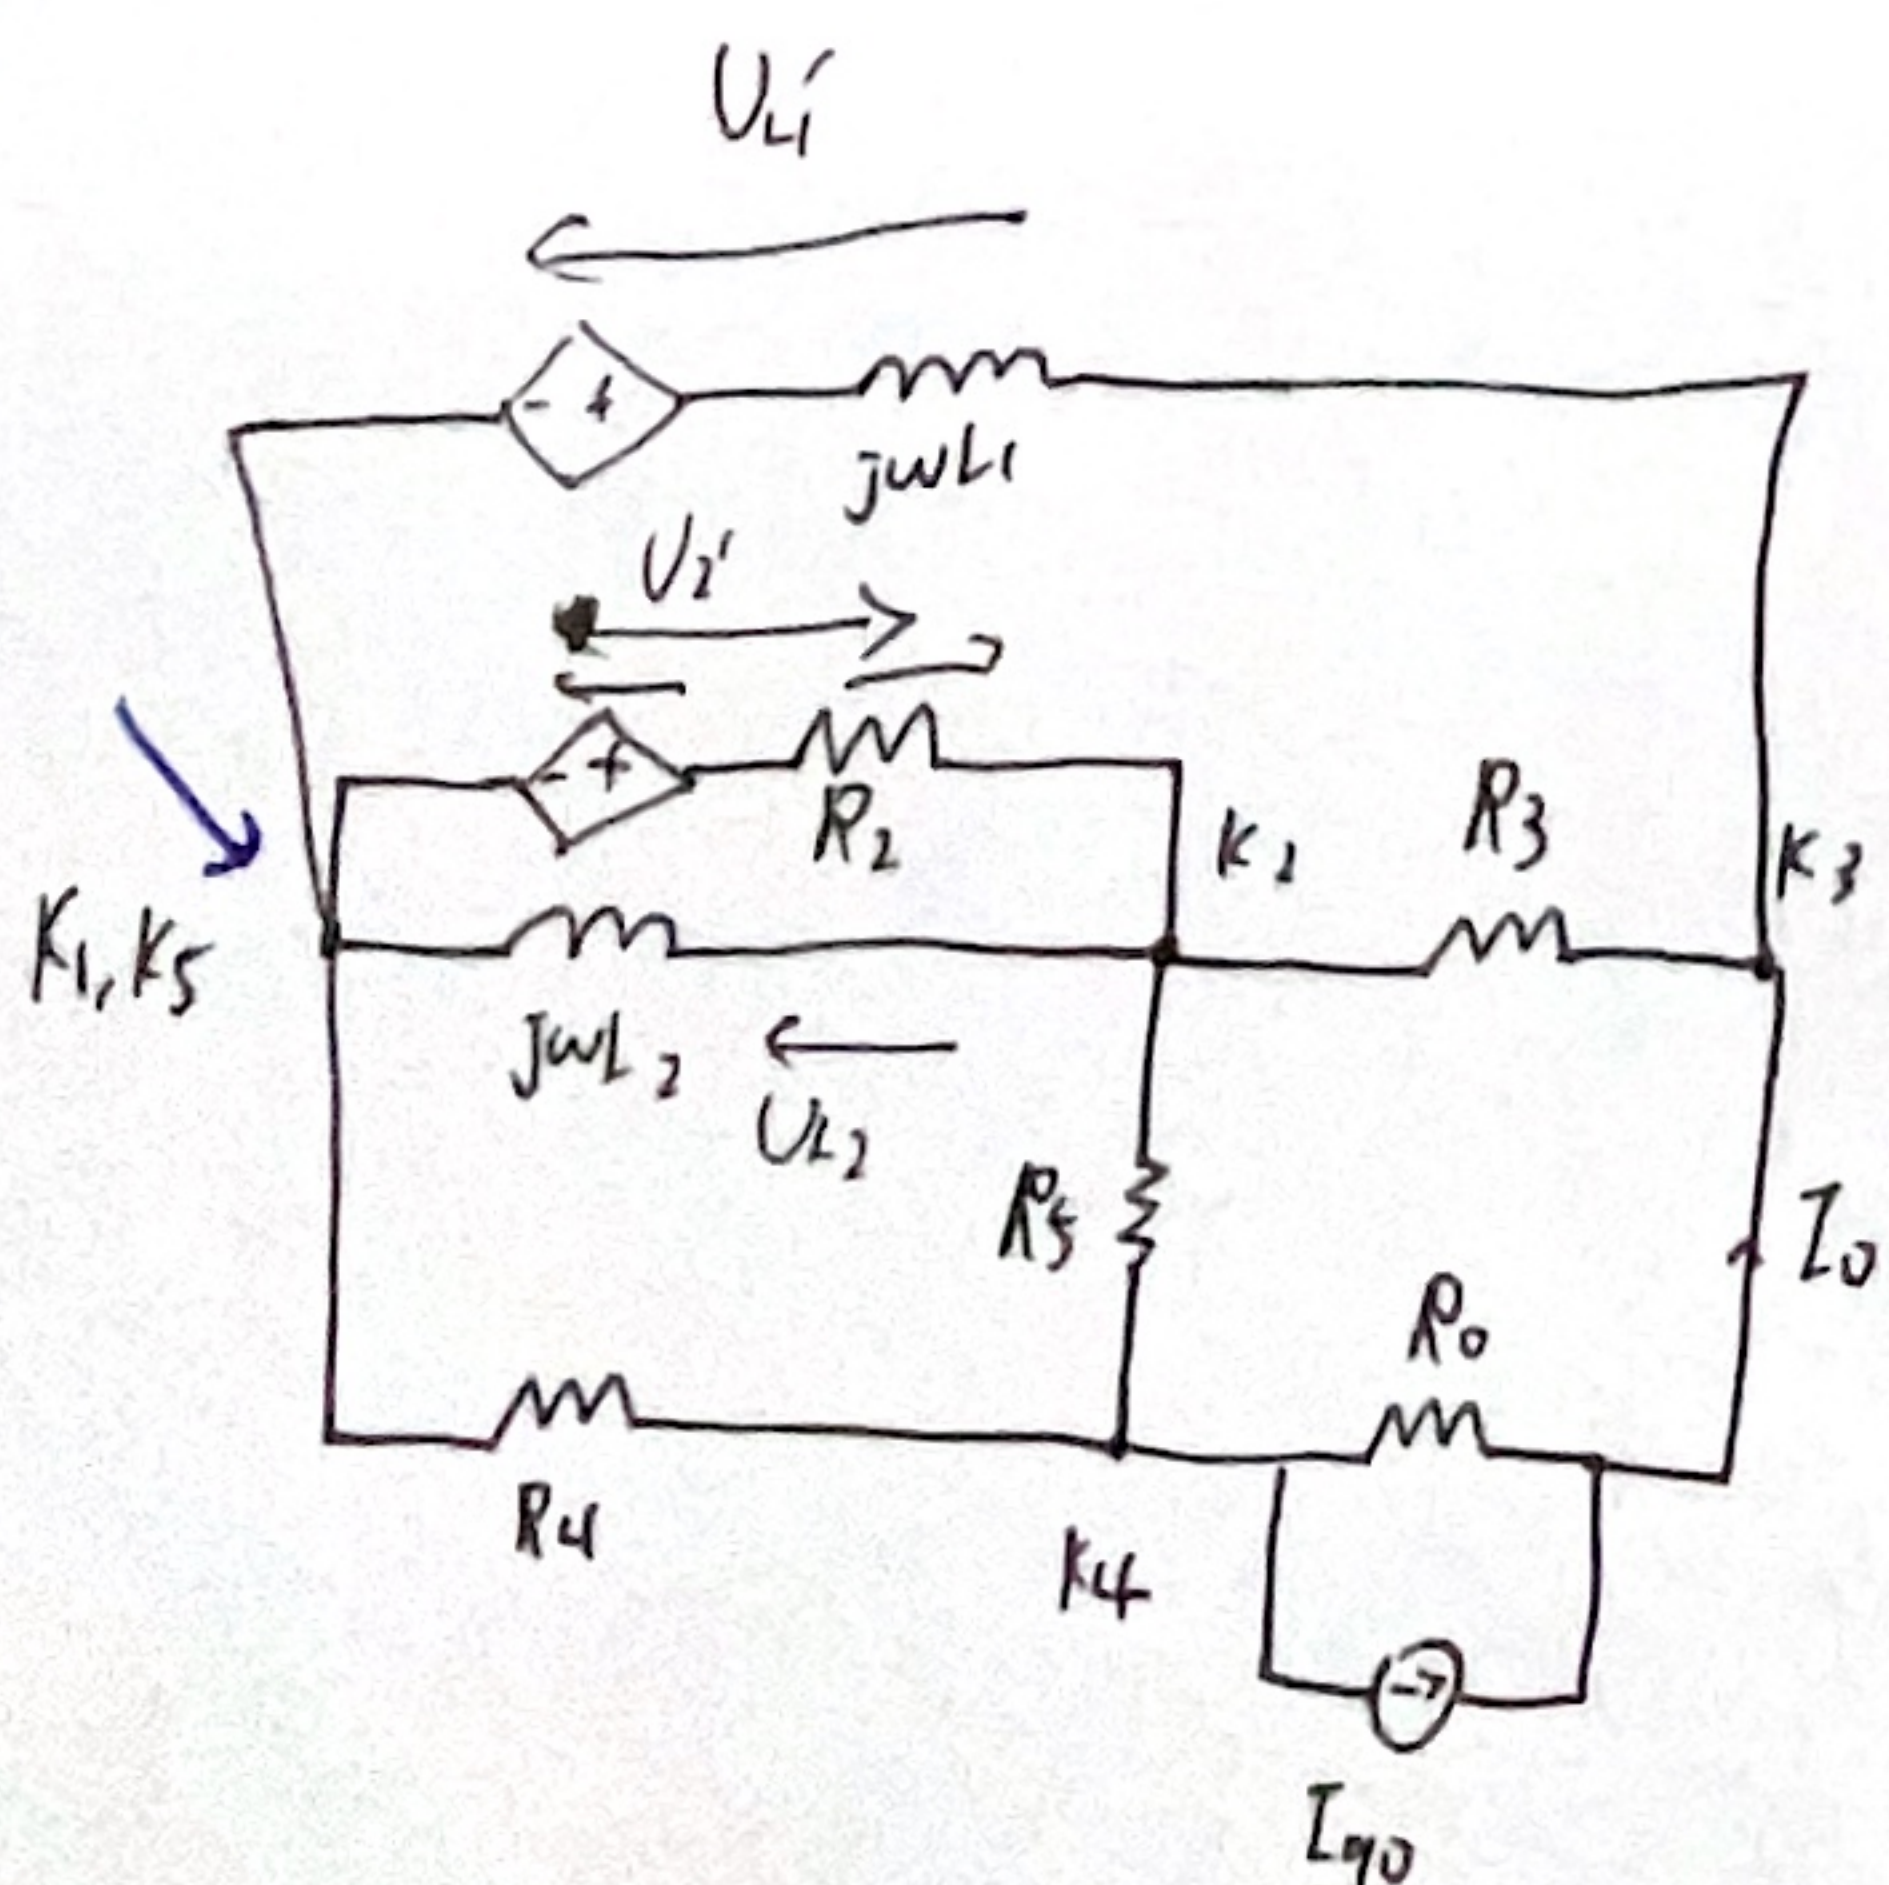 UL1'
- +
jwL1
U2'
- +
R2
K2
R3
K3
K1, K5
jwL2
UL2
R5
I0
R0
R4
K4
Iq0